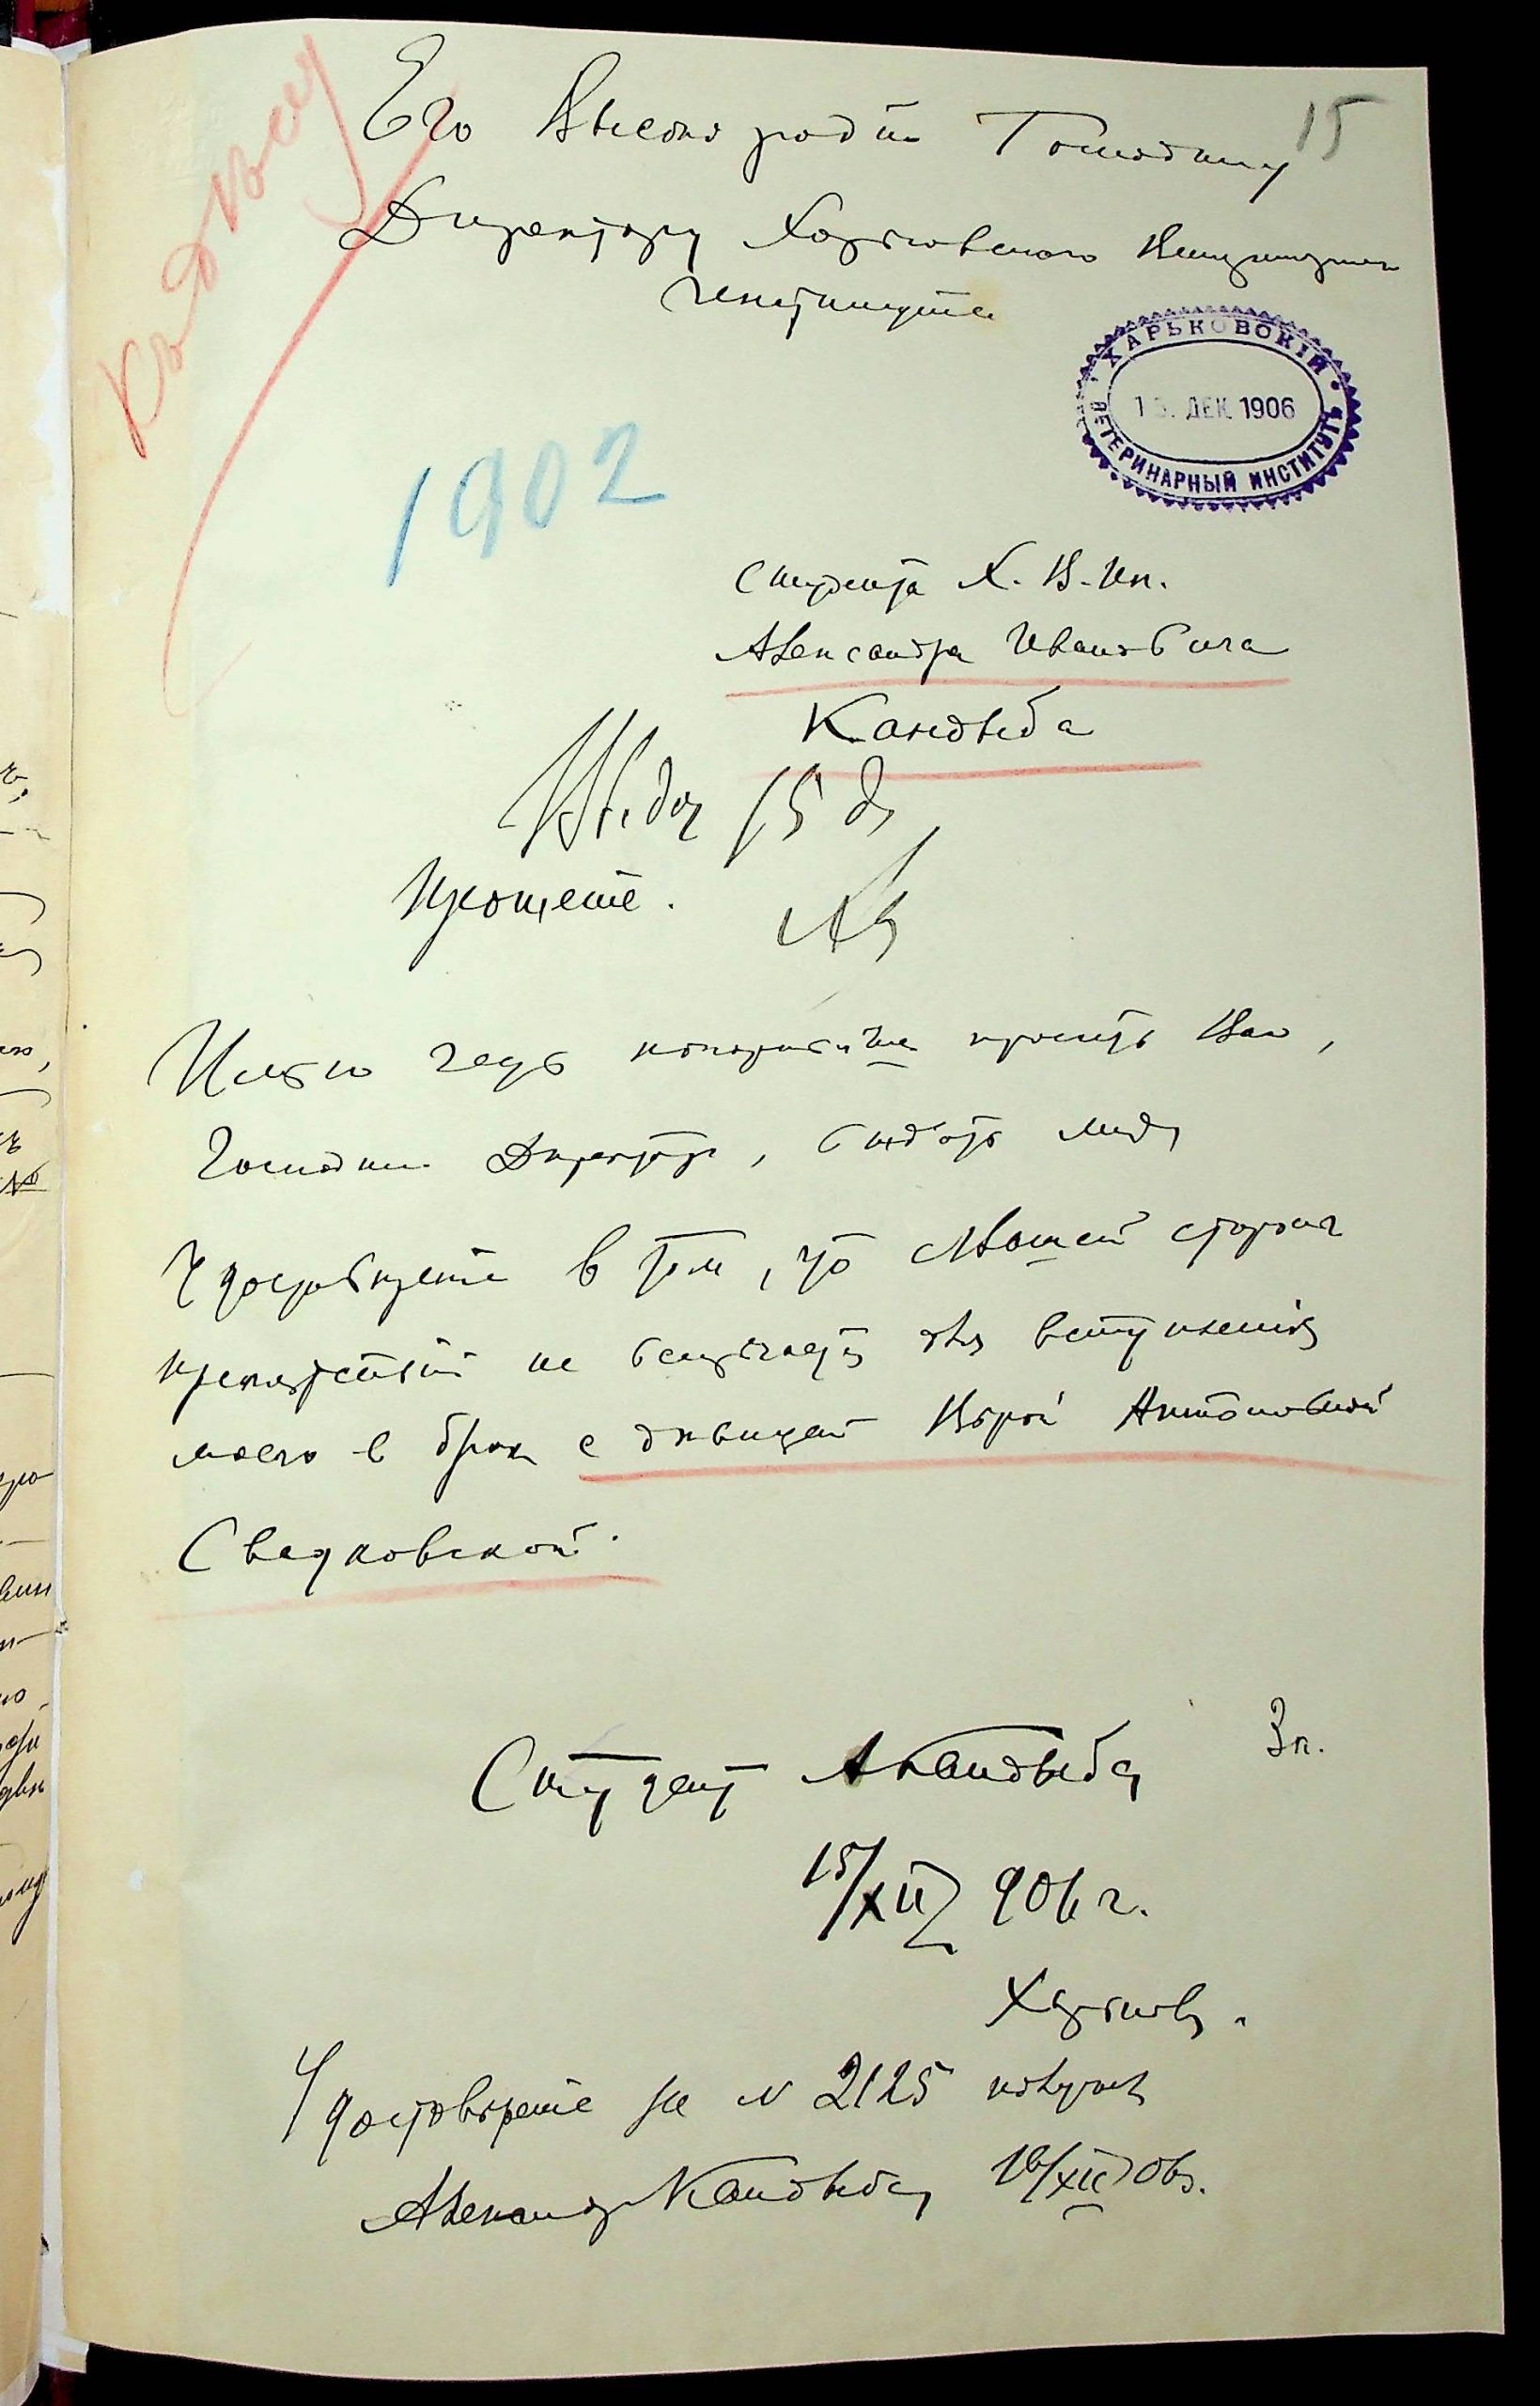 15
Къ дѣлу
Его Высокородiю Господину
Директору Харьковского Ветеринарн
Института
ХАРЬКОВСКIЙ ВЕТЕРИНАРНЫЙ ИНСТИТУТЪ
ДЕК. 1906
1902
Студента Х. В. Ин.
Александра Ивановича
Кандыба
15 д
Прошенiе.
Имѣю честь покорнѣйше просить Вас,
Господин Директор, выдать мнѣ
Удостовѣренiе в том, что с Вашей стороны
препятствiй не встрѣчается для вступленiя
моего в брак с дѣвицей Вѣрой Антоновной
Свадковской.
Студент А Кандыба 3 к.
15/XII 906 г.
Харьков.
Удостовѣренiе за N 2125 получил
Александр Кандыба 16/XII 06 г.